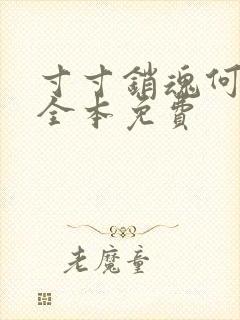 寸寸銷魂何
全本免費
老魔童